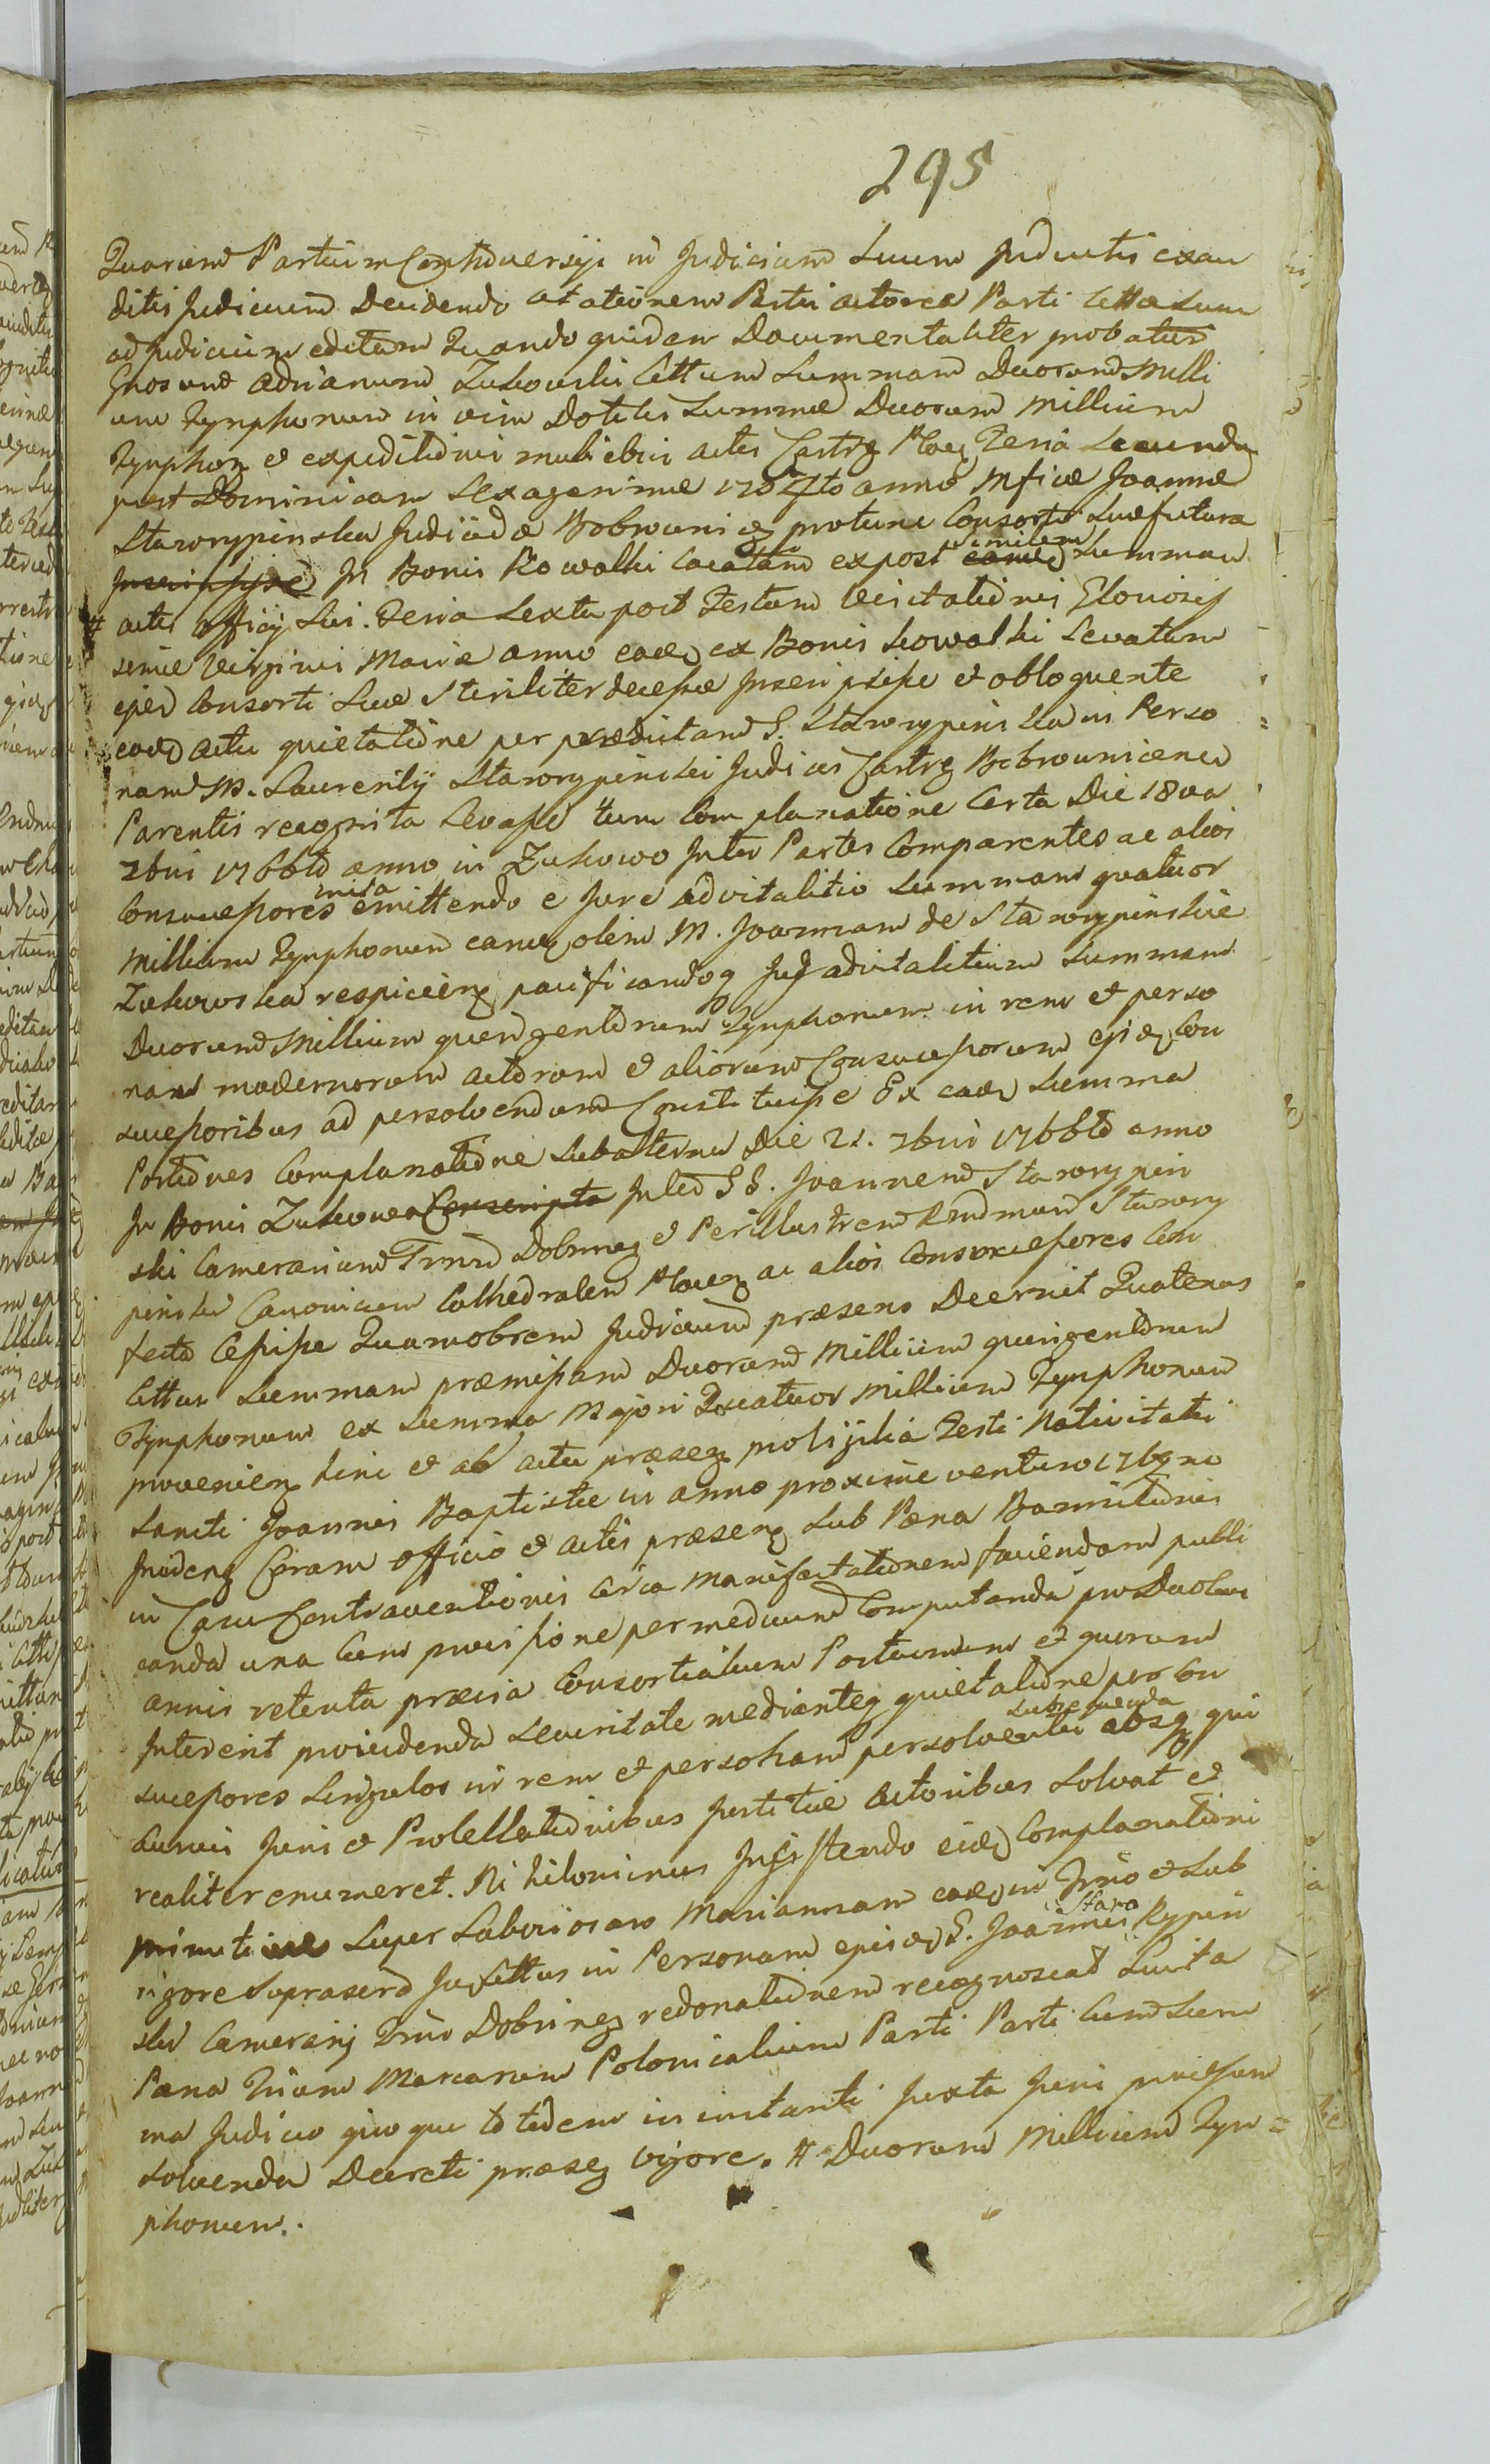 295
Quarum Partium Controversiis in Judicium Suum Inductis exau
ditis Judicium Decidendo Partis actorea Parti Citta suum
ad Judicium editam Quando quidem Documentaliter probatur
Gnosum Adrianum Zukowski Cittum Summam Duorum Milli
um Tynphonum in vim Dotalis Summæ Duorum Millium
Tynphon et expeditionis muliebris actis Castr Ploc Feria Secunda
post Dominicam Sexagesimæ 1754to anno Mficæ Joannæ
Starorypinska Judicidæ Bobrownic protunc Consorti Suæ futura
Inscripsisse In Bonis Kowalki Locatam expost similem eamd Summam
# actis officii Sui. Feria Sexta post Festum Visitationis Glorios
simæ Virginis Mariæ anno eod ex Bonis Kowalki Levatam
ejed Consorti Suæ Steriliter decessæ Inscripsisse et obloquente
eod actu quietatione per prædictam G. Starorypinska in Perso
nam M. Laurentij Starorypinski Judicis Castr Bobrownicens
Parentis recognita Levasse tum Complanatione Certa Die 18va
7bris 1766to anno in Zukowo Inter Partes Comparentes ac alios
Consuccessores inita emittendo e Jure advitalitio Summam quatuor
Millium Tynphonum eamq olim M. Joannam de Starorypinskie
Zukowska respicien pacificandoq Jus advitalitium Summam
Duorum Millium quingentorum Tynphonum in rem et perso
nam modernorum actorum et aliorum Consuccessorum ejsd Con
successoribus ad persolvendum Constituisse Ex ead Summa
Portiones Complanatione Subalterna Die 21. 7bris 1766to anno
In Bonis Zukowo Conscripta Inter GG. Joannem Starorypin
ski Camerarium Trrum Dobrinen et Perillustrem Rndmum Starory
pinski Canonicum Cathedralem Plocen ac alios Consuccessores Con
fecta Cessisse Quamobrem Judicium præsens Decernit Quatenus
Cittus Summam præmissam Duorum Millium quingentorum
Tynphonum ex Summa Majori Quatuor Millium Tynphonum
provenien hinc et ab actu præsen pro Vigilia Festi Nativitatis
Sancti Joannis Baptistæ in anno proxime venturo
Coram Officio et actis præsen Sub Pæna Bannitionis
in Casu Contraventionis Circa Manifestationem faciendam publi
canda una Cum provisione per medium Computanda pro Duobus
annis retenta præcia Consortialium Portionum et quorum
Intererit providenda Securitate mediante quietatione per Con
successores Singulos in rem et personam persolventis subsequenda absq qui
busvis Juris et Protellationibus Justitiæ actoribus Solvat et
realiter enumeret. Nihilominus Insistendo eid Complanationi
primitivæ Super Laboriosam Mariannam ead in Trmo et Sub
rigore Suprascr Jus Cittus in Personam ejusd G. Joannis Staro Rypin
ski Camerarij Trrum Dobrinen redonationem recognoscat Luita
Pæna Trium Marcarum Polonicalium Parti Parti Cum Sum
ma Judicio quoque totidem in instanti Juxta Juris præssum
solvenda Decreti præsen vigore. # Duorum Millium Tyn=
phonum.